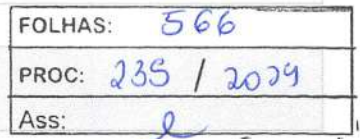 FOLHAS: 566
PROC: 235 / 2024
Ass: